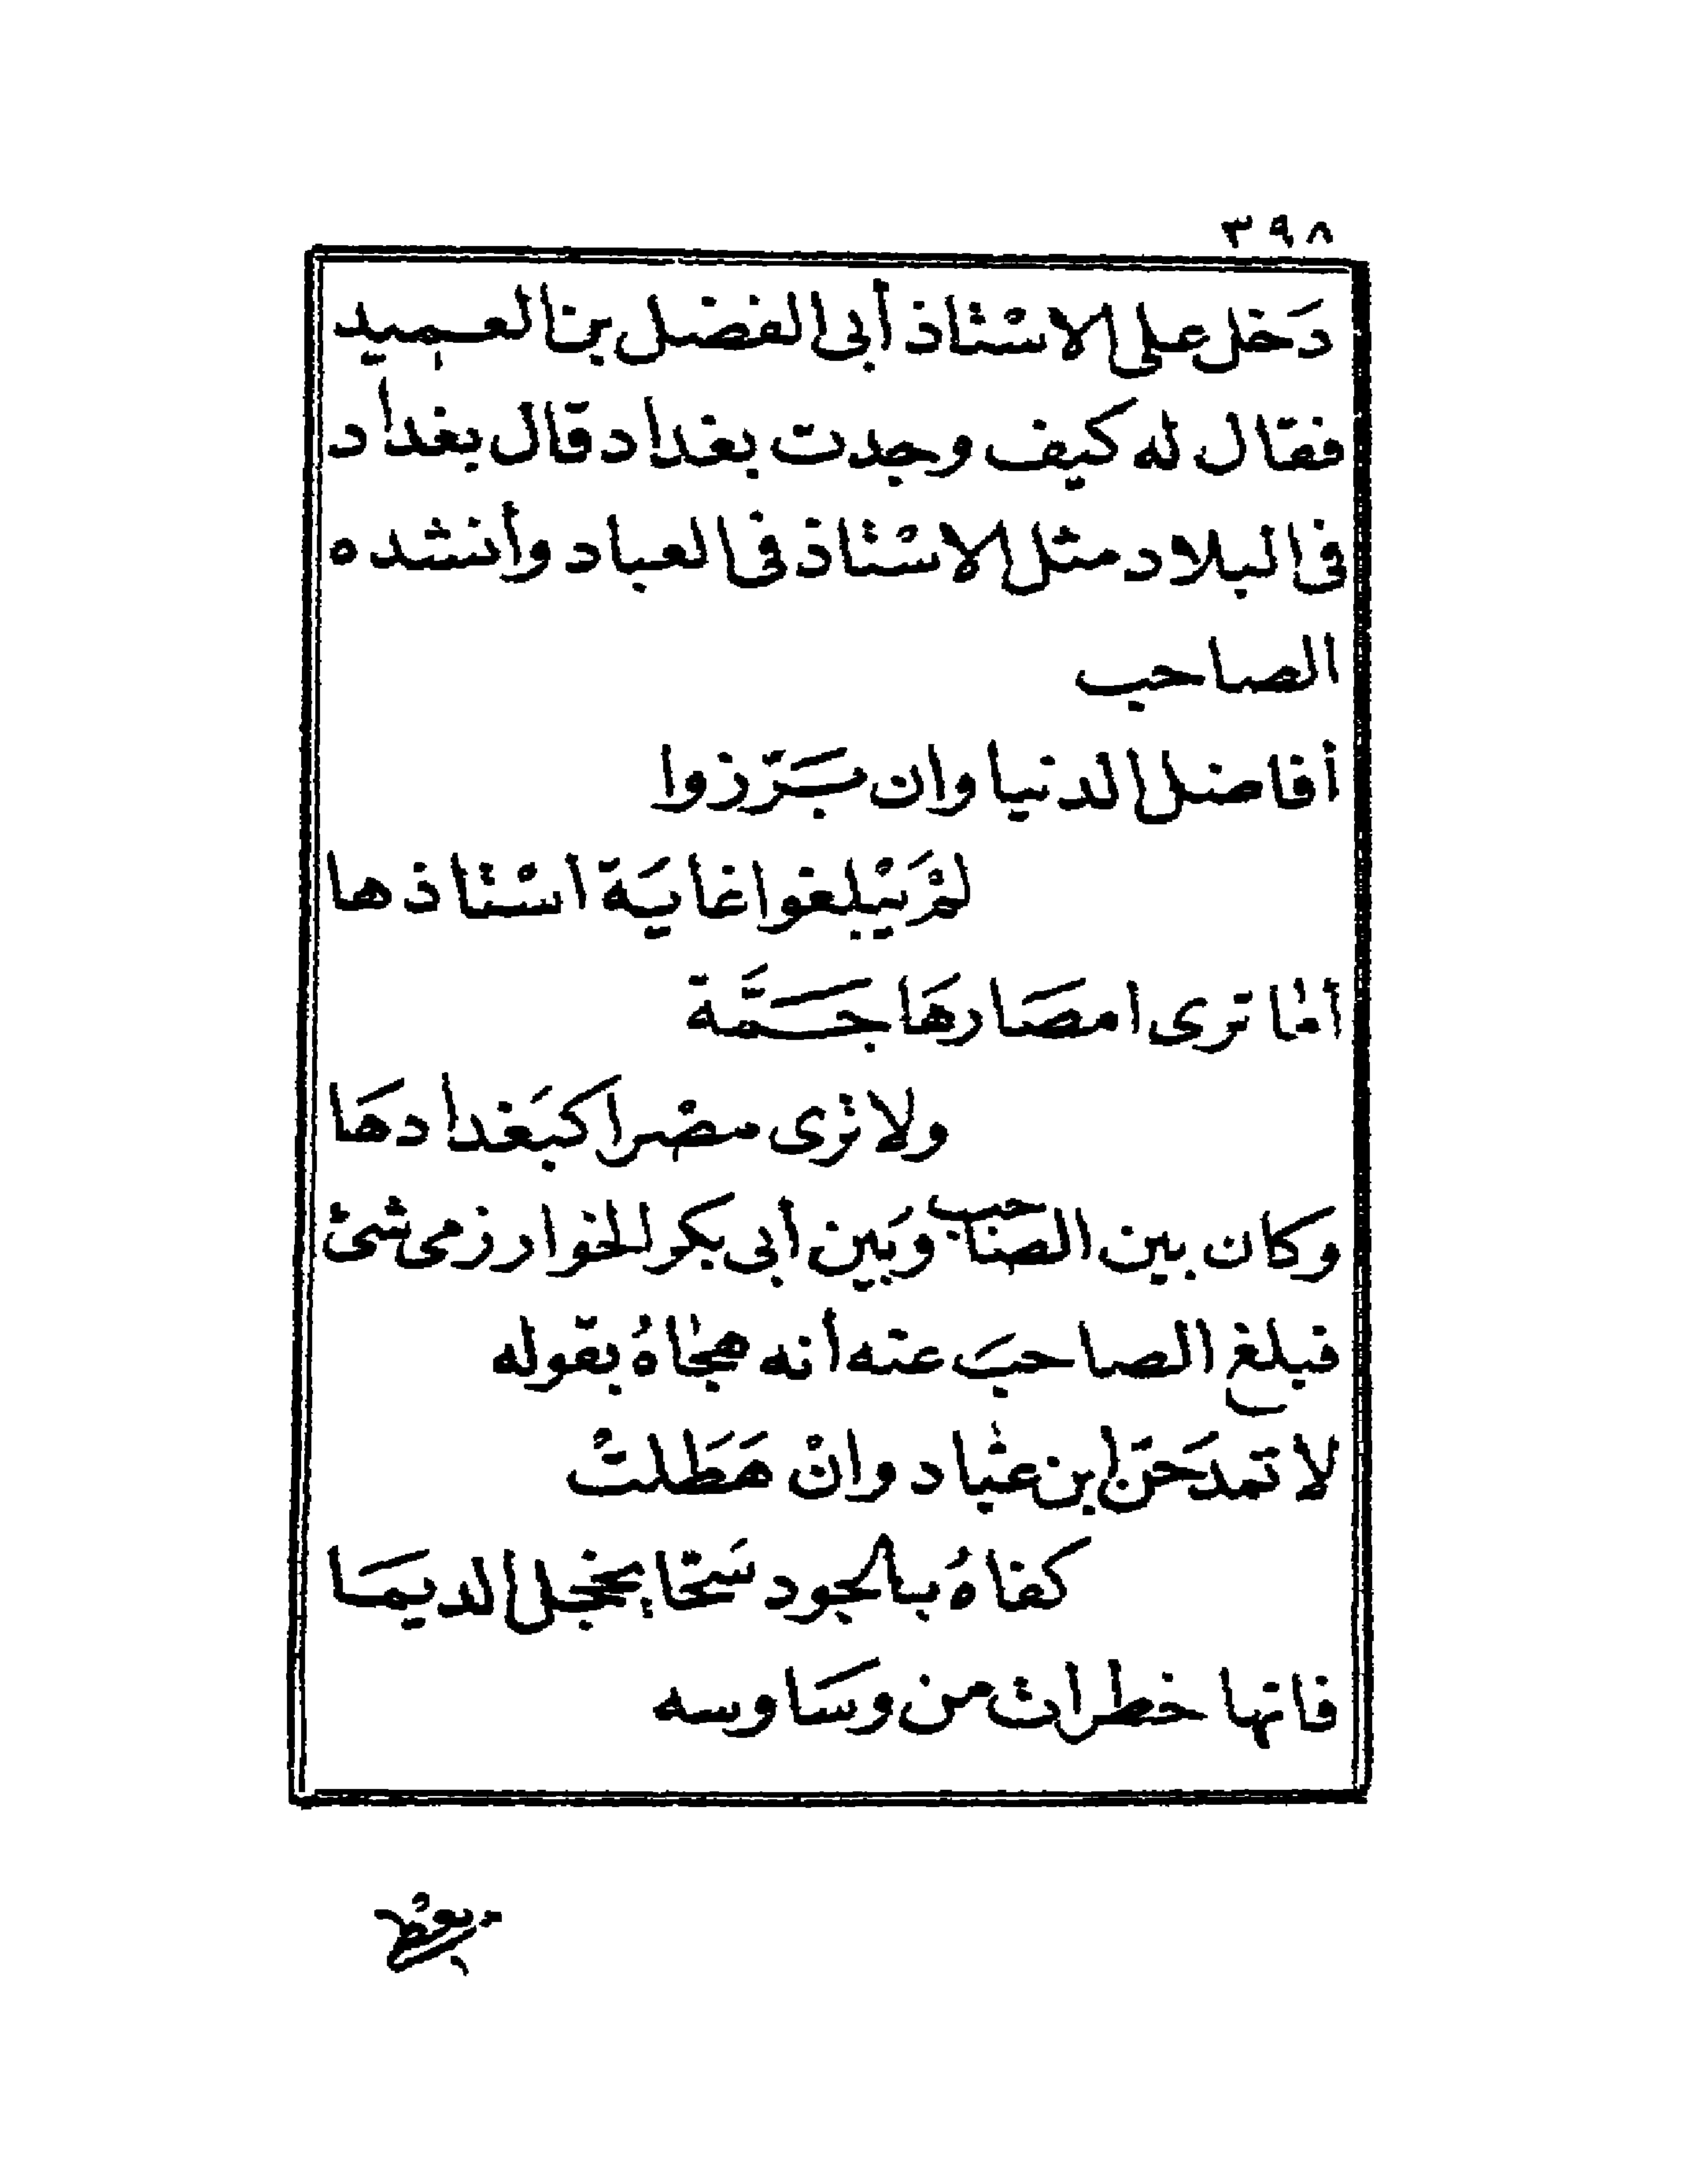 ٣٩٨
دَخل على الاسْتاذ أبى الفضل بن العميد
فقال له كيف وجدت بغداد قال بغداد
فى البلاد مثل الاسْتاذ فى العباد وأنشده
الصاحب
أفاضل الدنيا وان بَرّزوا
لمْ يَبْلغوا غايَة اسْتاذها
أمّا ترى امصَارهَا جَمَّة
ولا ترى مصْرا كبَغدادهَا
وكان بين الصاحب وبَين أبى بكر الخوارزمى شئ
فبلغ الصاحبَ عنه أنه هجاهُ بقوله
لا تمدَحَنّ ابن عبّاد وانْ هَطَلتْ
كفاهُ بالجود سَحّا يخجل الديمَا
فانها خطرات من وسَاوسه